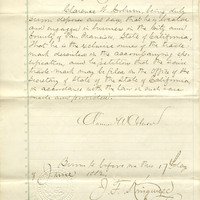 Clarence W. Coburn, being duly
sworn deposes and say that he is located
and engaged in business in the City and
County of San Francisco, State of California,
that he is the exclusive owner of the trade
mark described in the accompanying de-
scription, and he petitions that the same
trade mark may be filed in the office of the
Secretary of State of the State of California,
in accordance with the law in such
made and provided.
Sworn to before me this 17th day
of June 1882
J. F.